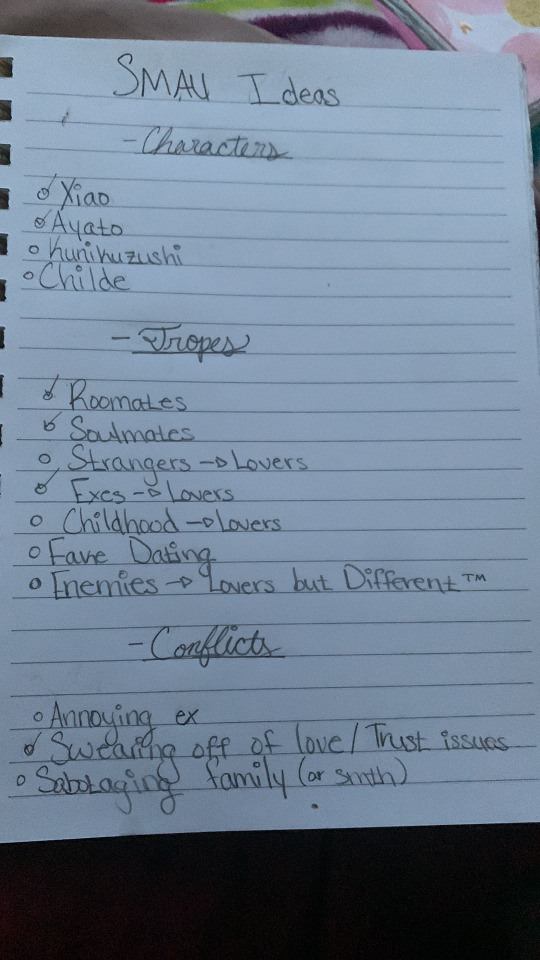 SMAU Ideas
- Characters
Xiao
Ayato
Kunikuzushi
Childe
- Tropes
Roomates
Soulmates
Strangers → Lovers
Exes → Lovers
Childhood → Lovers
Fake Dating
Enemies → Lovers but Different ™
- Conflicts
Annoying ex
Swearing off of love / Trust issues
Sabotaging family (or smth)